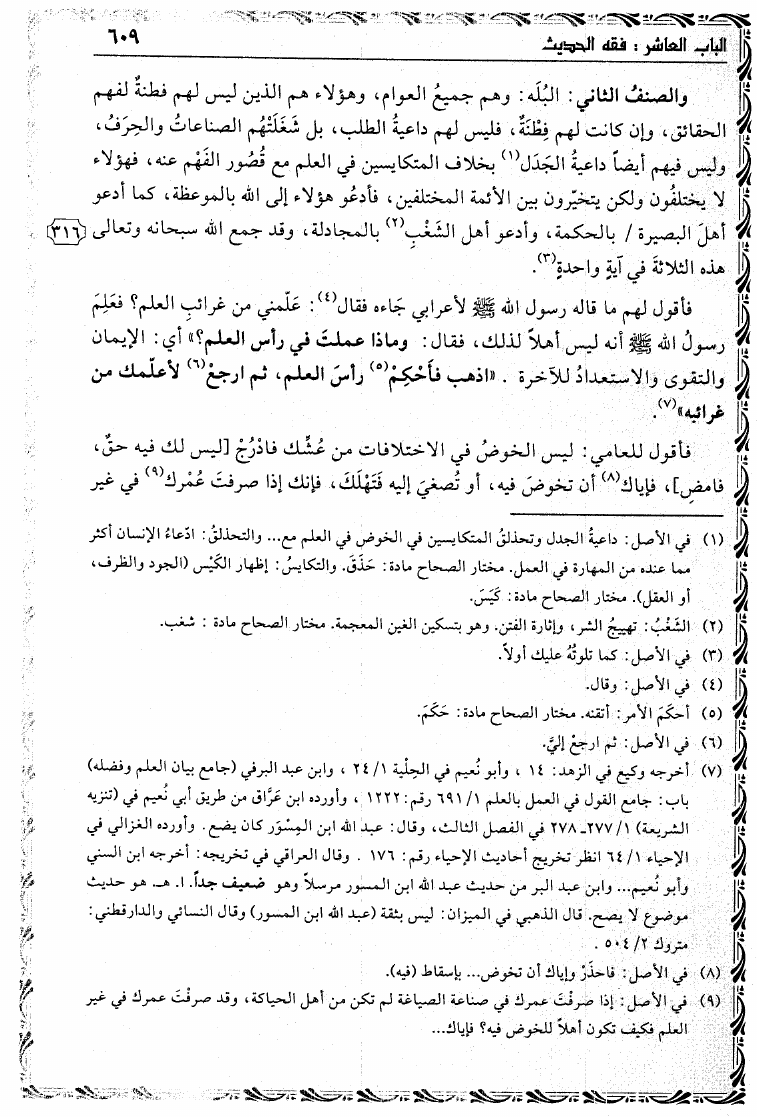 الباب العاشر : فقه الحديث
٦٠٩
والصنفُ الثاني: البُلَه: وهم جميعُ العوام، وهؤلاء هم الذين ليس لهم فطنةٌ لفهم
الحقائق، وإن كانت لهم فِطْنَةٌ، فليس لهم داعيةُ الطلب، بل شغَلَتْهُم الصناعاتُ والحِرَفُ،
وليس فيهم أيضاً داعيةُ الجَدَل(١) بخلاف المتكايسين في العلم مع قُصُور الفَهْم عنه، فهؤلاء
لا يختلفُون ولكن يتخيّرون بين الأئمة المختلفين، فأدعُو هؤلاء إلى الله بالموعظة، كما أدعو
أهلَ البصيرة / بالحكمة، وأدعو أهل الشَغْبِ(٢) بالمجادلة، وقد جمع الله سبحانه وتعالى
٣١٦
هذه الثلاثةَ في آيةٍ واحدةٍ(٣).
فأقول لهم ما قاله رسول الله ﷺ لأعرابي جَاءه فقال(٤): عَلّمني من غرائبِ العلم؟ فعَلِمَ
رسولُ الله ﷺ أنه ليس أهلاً لذلك، فقال: وماذا عملتَ في رأس العلم؟» أي: الإيمان
والتقوى والاستعدادُ للآخرة . «اذهب فأَحْكِمْ(٥) رأسَ العلم، ثم ارجعْ(٦) لأعلّمك من
غرائبه»(٧).
فأقول للعامي: ليس الخوضُ في الاختلافات من عُشّك فادْرُجْ [ليس لك فيه حقٌ،
فامضِ]، فإياك(٨) أن تخوضَ فيه، أو تُصغيَ إليه فَتَهْلَكَ، فإنك إذا صرفتَ عُمْرك(٩) في غير
(١) في الأصل: داعيةُ الجدل وتحذلقُ المتكايسين في الخوض في العلم مع... والتحذلقُ: ادّعاءُ الإنسان أكثر
مما عنده من المهارة في العمل. مختار الصحاح مادة: حَذَقَ. والتكايسُ: إظهار الكَيْس (الجود والظرف،
أو العقل). مختار الصحاح مادة: كَيَسَ.
(٢) الشَغْبُ: تهييجُ الشر، وإثارة الفتن. وهو بتسكين الغين المعجمة. مختار الصحاح مادة : شغب.
(٣) في الأصل: كما تلوتُهُ عليك أولاً.
(٤) في الأصل: وقال.
(٥) أحكمَ الأمر: أتقنه. مختار الصحاح مادة: حَكَمَ.
(٦) في الأصل: ثم ارجعْ إليَّ.
(٧) أخرجه وكيع في الزهد: ١٤ ، وأبو نُعيم في الحِلْية ٢٤/١ ، وابن عبد البرفي (جامع بيان العلم وفضله)
باب: جامع القول في العمل بالعلم ٦٩١/١ رقم: ١٢٢٢ ، وأورده ابن عَرَّاق من طريق أبي نُعيم في (تنزيه
الشريعة) ٢٧٧/١ـ ٢٧٨ في الفصل الثالث، وقال: عبد الله ابن المِسْوَر كان يضع. وأورده الغزالي في
الإحياء ٦٤/١ انظر تخريج أحاديث الإحياء رقم: ١٧٦ . وقال العراقي في تخريجه: أخرجه ابن السني
وأبو نُعيم... وابن عبد البر من حديث عبد الله ابن المسور مرسلاً وهو ضعيف جداً. ا. هـ. هو حديث
موضوع لا يصح. قال الذهبي في الميزان: ليس بثقة (عبد الله ابن المسور) وقال النسائي والدارقطني:
متروك ٥٠٤/٢ .
(٨) في الأصل: فاحذَرْ وإياك أن تخوض... بإسقاط (فيه).
(٩) في الأصل: إذا صرفْتَ عمرك في صناعة الصياغة لم تكن من أهل الحياكة، وقد صرفْتَ عمرك في غير
العلم فكيف تكون أهلاً للخوض فيه؟ فإياك...